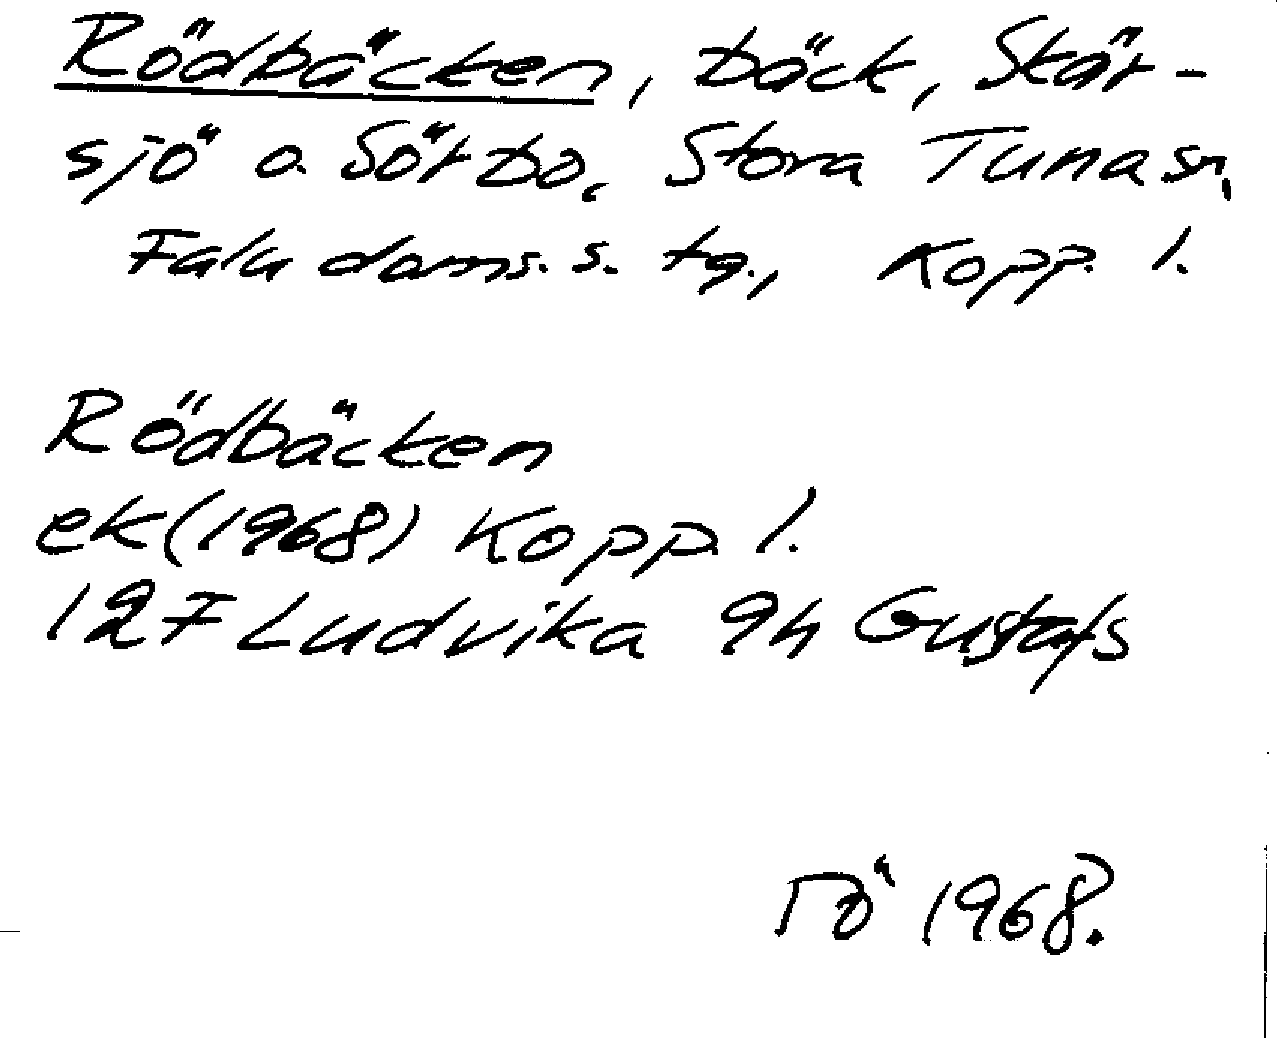 Rödbäcken, bäck, Skär-
sjö o. Sörbo, Stora Tuna sn,
Falu doms. s. tg., Kopp. l.
Rödbäcken
ek (1968) Kopp. l.
12F Ludvika 9h Gustafs
1968.